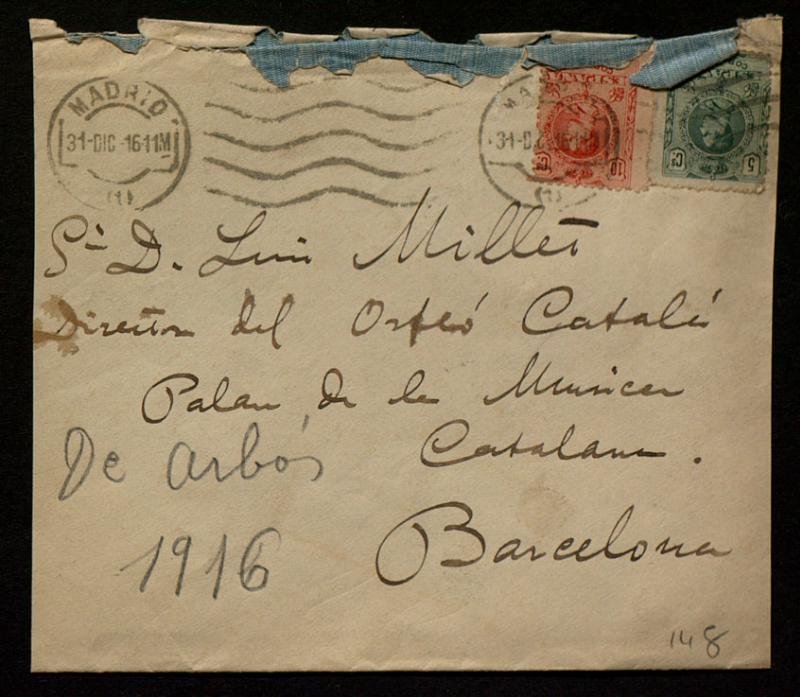 MADRID
31-DIC-16·11M
(1)
31-D 16·11M
(1)
10 Cs
5 Cs
Sr. D. Luis Millet
Director del Orfeó Català
Palau de la Musica
Catalana.
De Arbós
1916
Barcelona
148